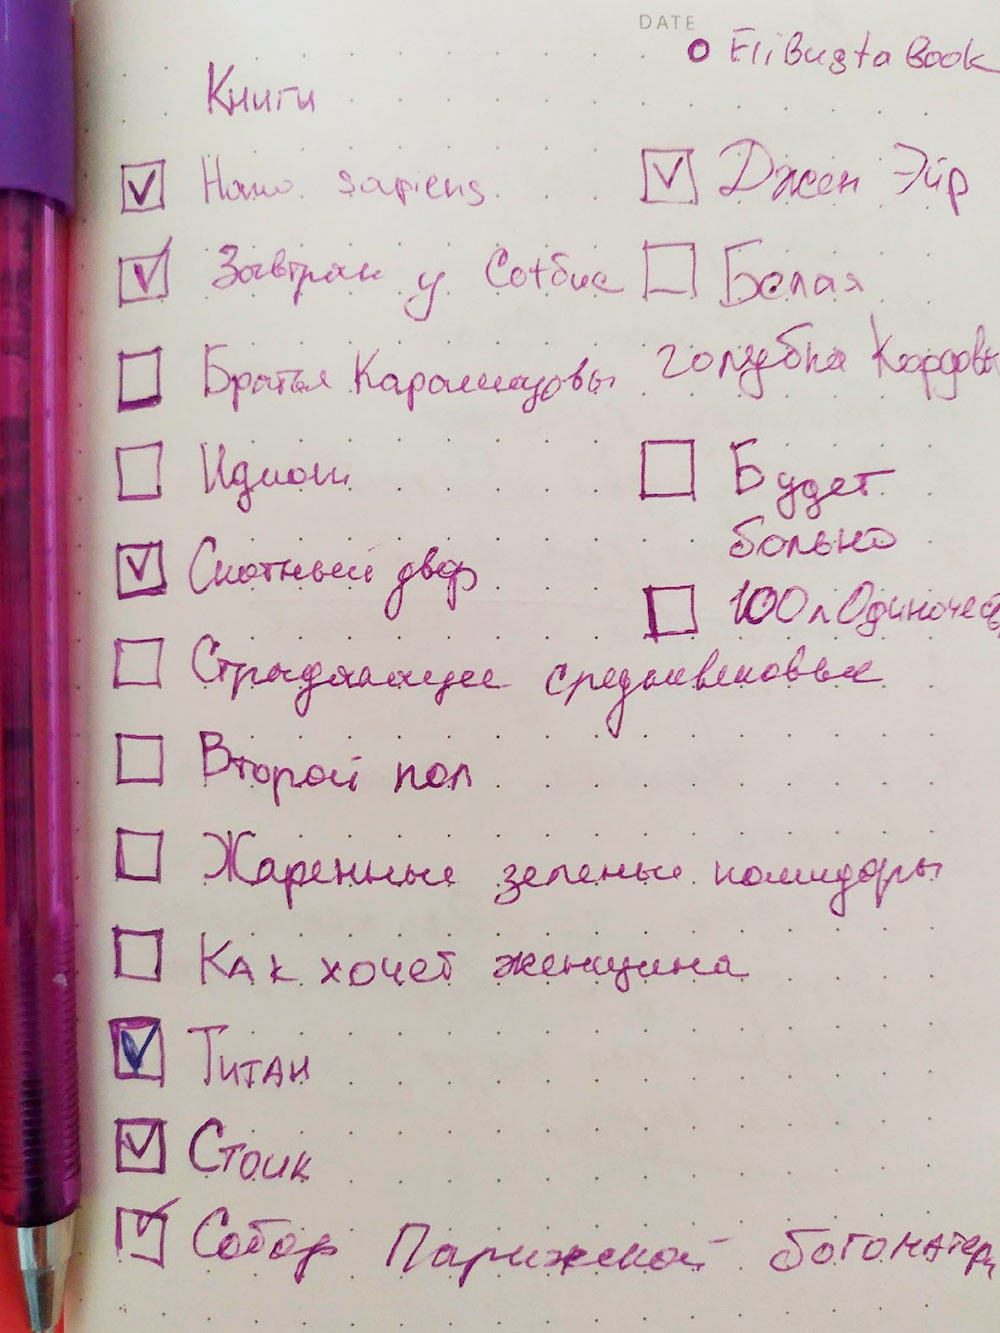 DATE
FliBusta Book
Книги
Homo sapiens
Джен Эйр
Завтрак у Сотбис
Белая
голубка Кордовы
Братья Карамазовы
Идиот
Будет
больно
Скотный двор
100 л Одиночес
Страдающее средневековье
Второй пол
Жаренные зеленые помидоры
Как хочет женщина
Титан
Стоик
Собор Парижской богоматери